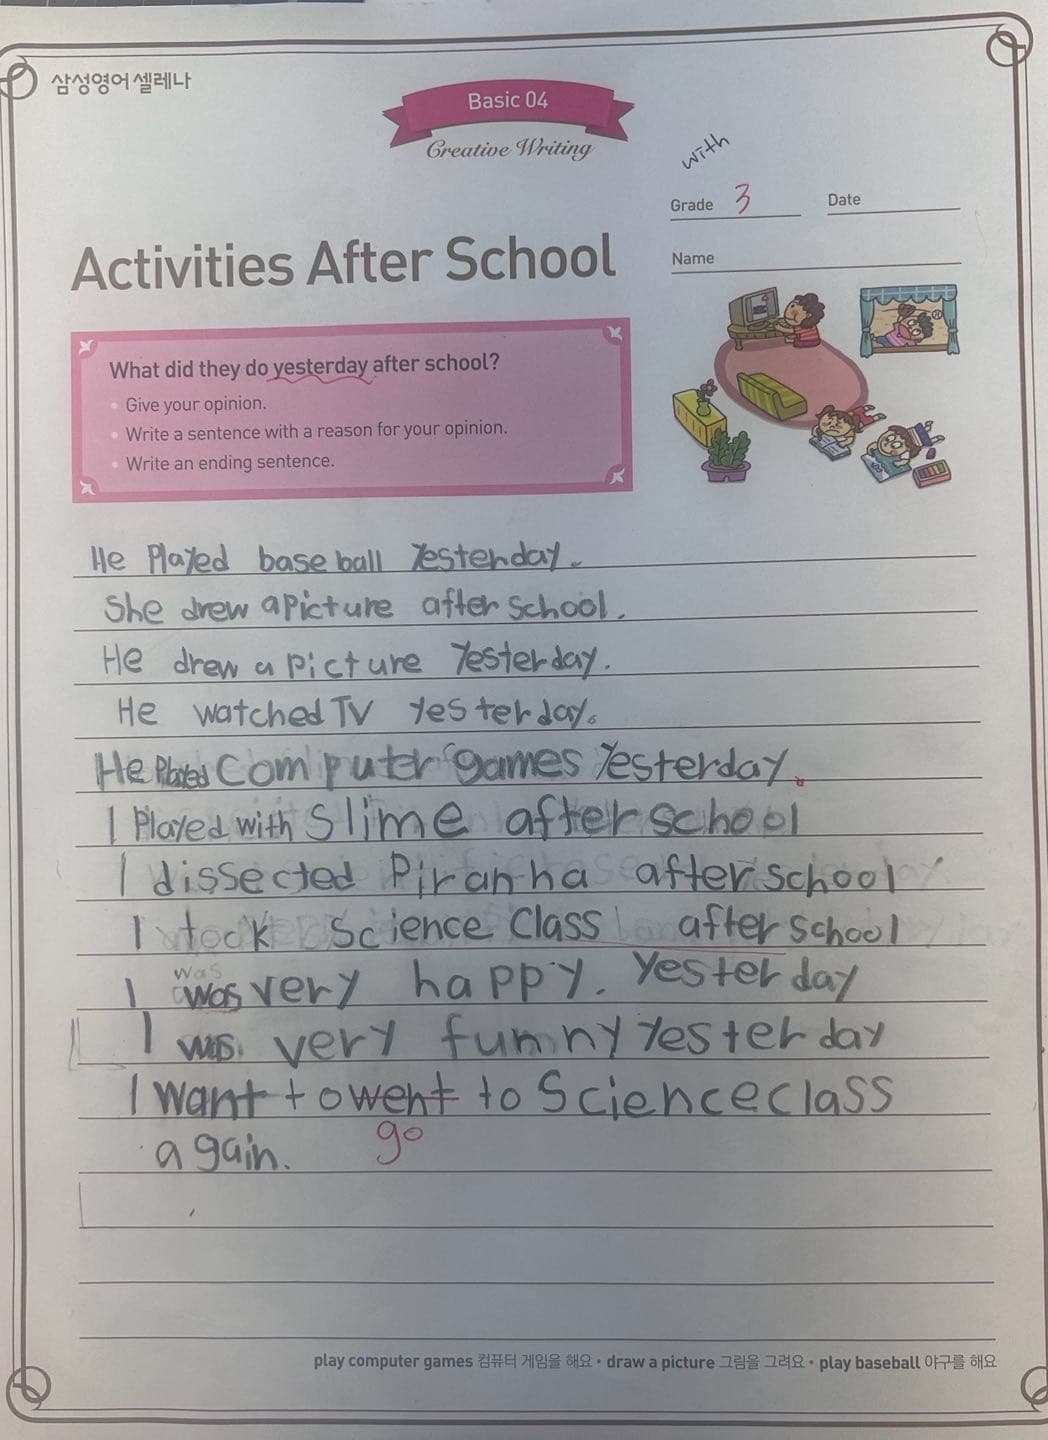 삼성영어 셀레나
Basic 04
Creative Writing
with
Grade 3 Date
Name
Activities After School
What did they do yesterday after school?
• Give your opinion.
• Write a sentence with a reason for your opinion.
• Write an ending sentence.
He Played base ball Yesterday.
She drew a picture after school.
He drew a picture Yesterday.
He watched TV yesterday.
He Played Computer games Yesterday.
I Played with Slime after school
I dissected Piranha after school
I took Science Class after school
was
I was very happy. Yesterday
I was very funny Yesterday
I want to went to Science class
go
again.
play computer games 컴퓨터 게임을 해요 • draw a picture 그림을 그려요 • play baseball 야구를 해요